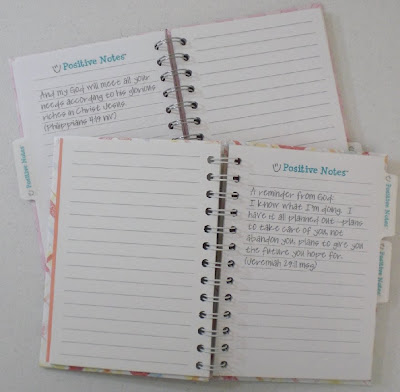 Positive Notes
And my God will meet all your
needs according to his glorious
riches in Christ Jesus.
(Philippians 4:19 NIV)
Positive Notes
Positive Notes
A reminder from God:
I know what I'm doing. I
have it all planned out--plans
to take care of you, not
abandon you, plans to give you
the future you hope for.
(Jeremiah 29:11 msg)
Positive Notes
Positive Notes